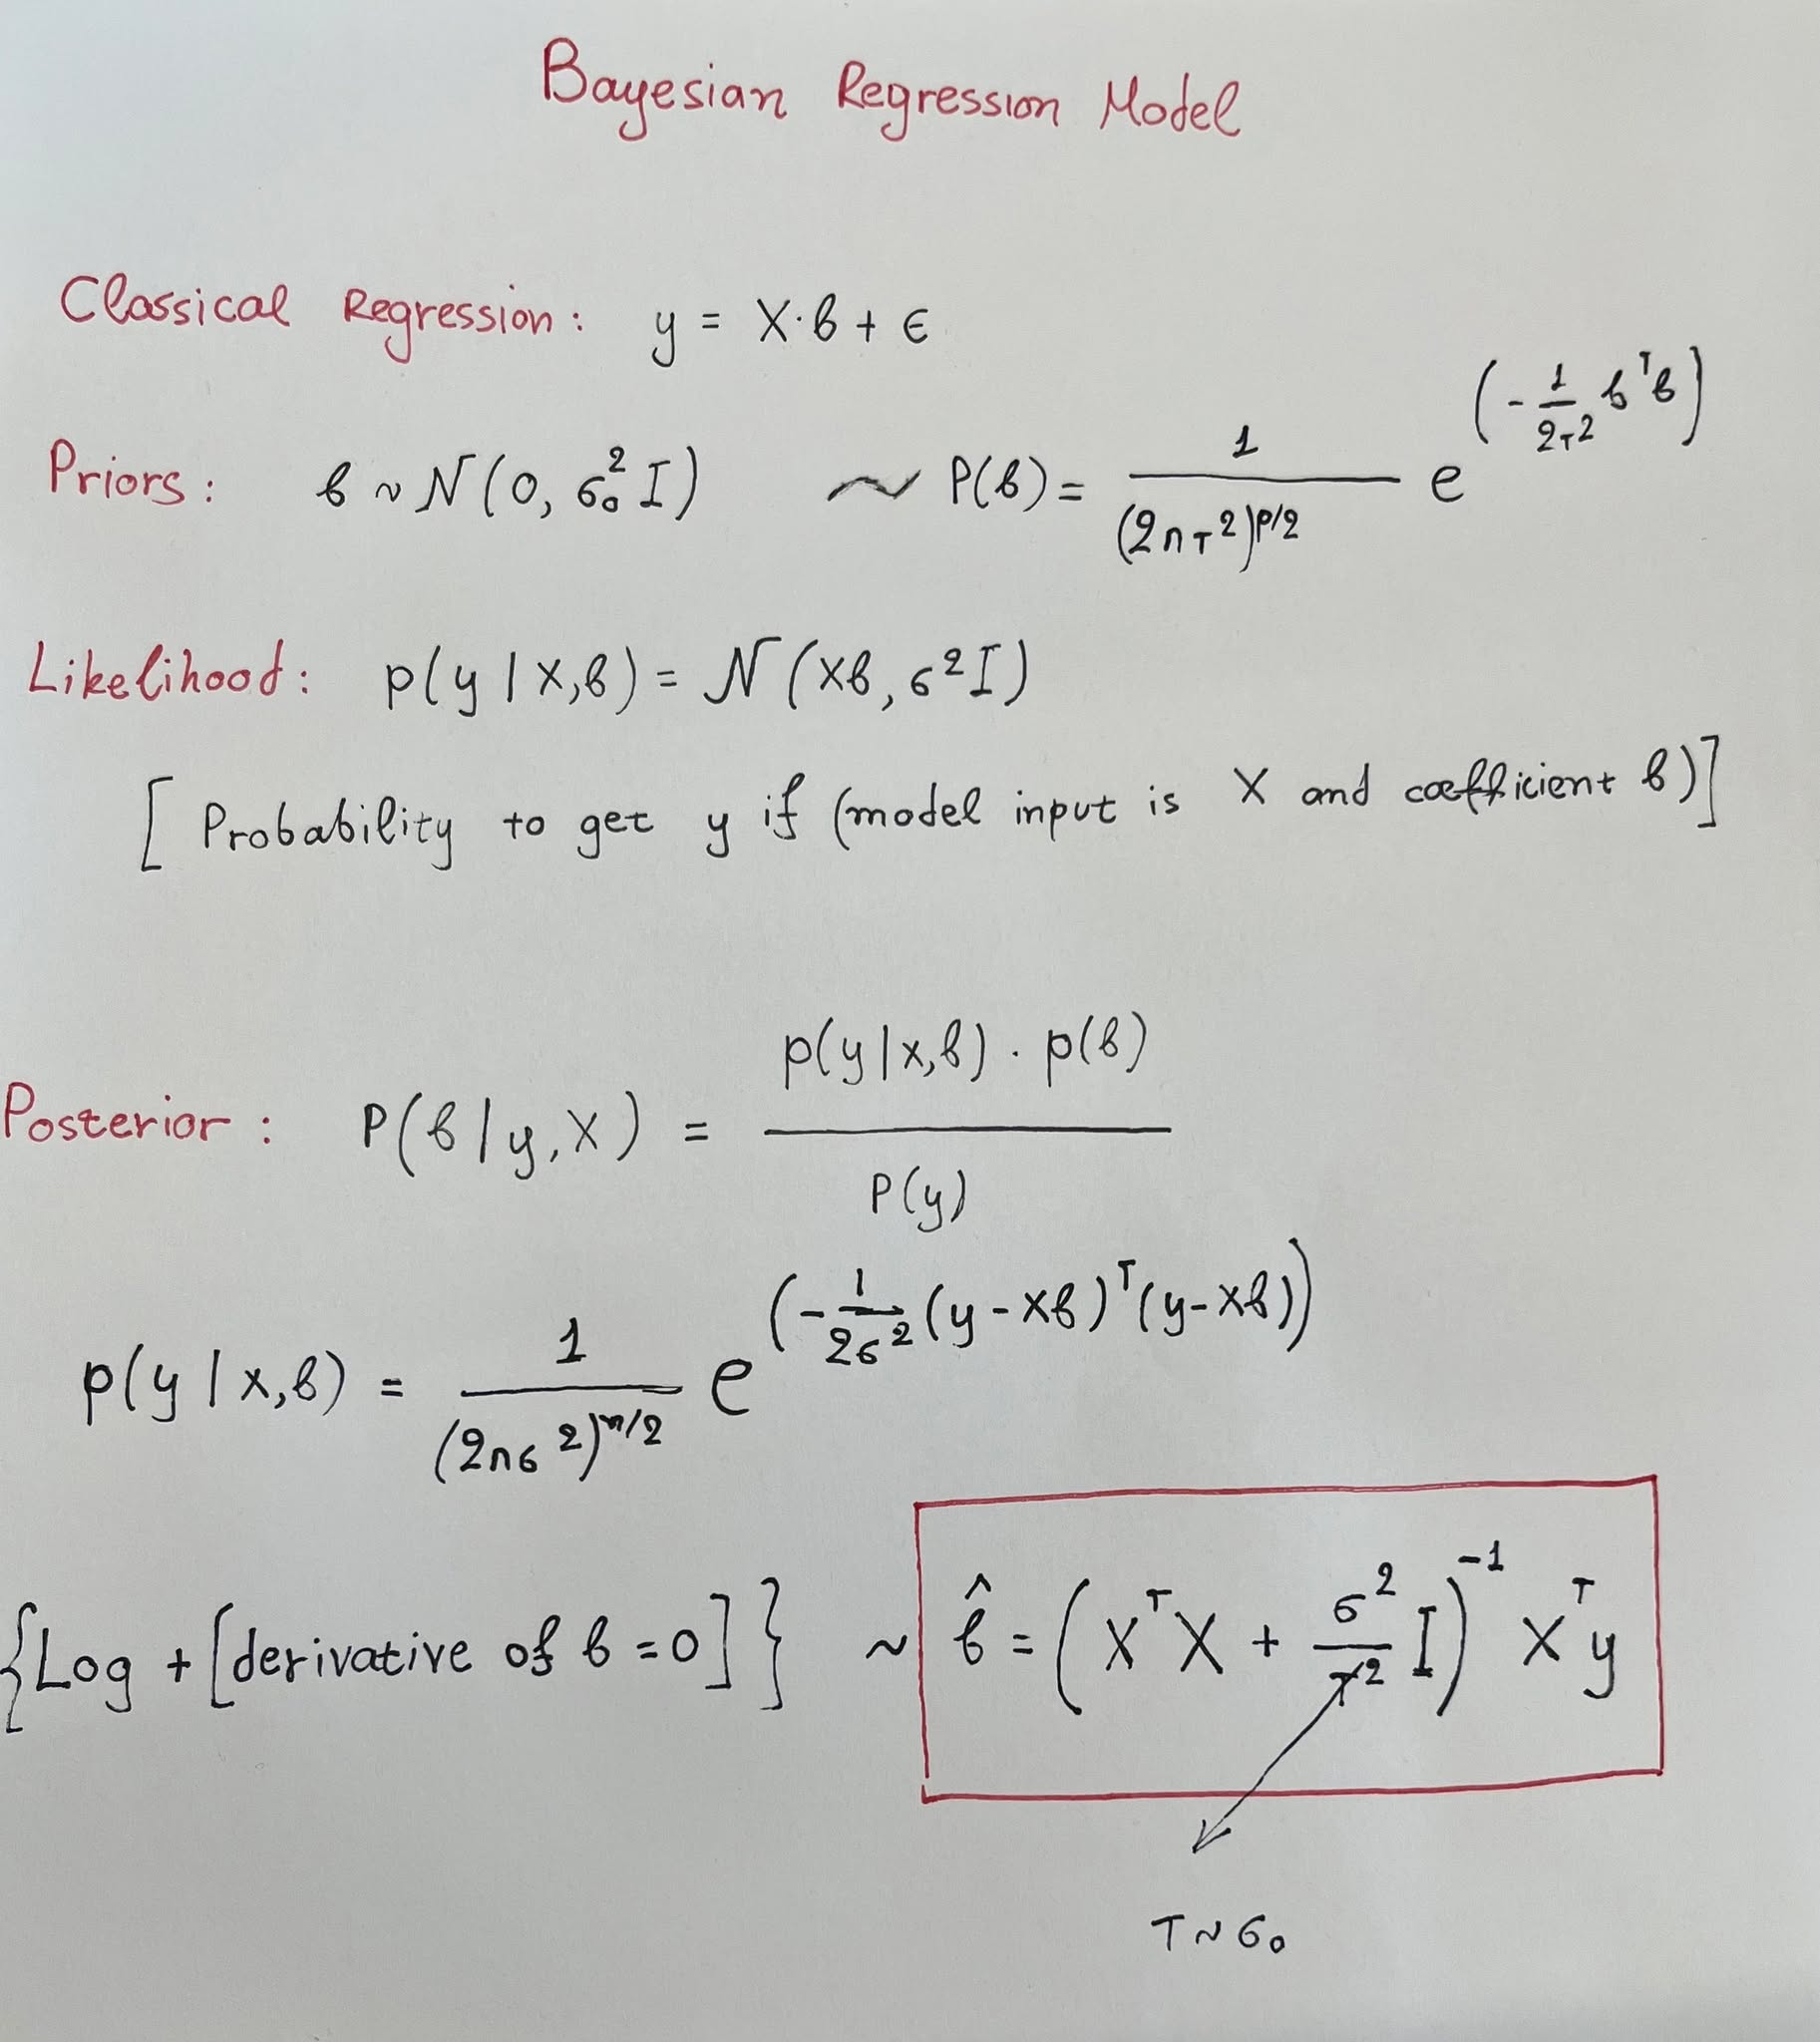 Bayesian Regression Model
Classical Regression: y = X·b + ϵ
Priors: b ~ N(0, σ₀² I) ~ P(b) = 1/(2πτ²)^(p/2) e^(-1/(2τ²) bᵀb)
Likelihood: p(y | X, b) = N(Xb, σ²I)
[Probability to get y if (model input is X and coefficient b)]
Posterior: P(b | y, X) = p(y | x, b) · p(b) / P(y)
p(y | x, b) = 1/(2πσ²)^(n/2) e^(-1/(2σ²) (y - Xb)ᵀ(y - Xb))
{Log + [derivative of b = 0]} ~ b̂ = (XᵀX + σ²/τ² I)⁻¹ Xᵀy
τ ~ σ₀